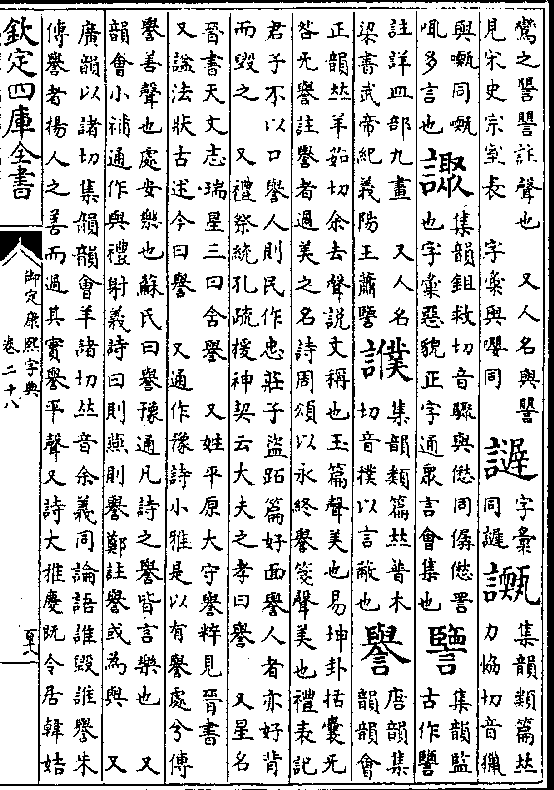 鶯之譻譻詐聲也　又人名與譻
見宋史宗室表　字彙與嚶同
字彙
同謘
集韻類篇𠀤
力協切音獵
與嘅同嘅
多言也
集韻鉏救切音驟與僽同僝僽詈
也字彙惡貌正字通衆言會集也
譼
集韻監
古作譼
註詳皿部九畫　又人名
梁書武帝紀義陽王蕭譼
集韻類篇𠀤普木
切音撲以言蔽也
譽
唐韻集
韻韻會
正韻𠀤羊茹切余去聲說文稱也玉篇聲美也易坤卦括囊无
咎无譽註譽者過美之名詩周頌以永終譽箋聲美也禮表記
君子不以口譽人則民作忠莊子盜跖篇好面譽人者亦好背
而毀之　又禮祭統孔疏援神契云大夫之孝曰譽　又星名
晉書天文志瑞星三曰含譽　又姓平原大守譽粹見晉書
又諡法狀古述今曰譽　又通作豫詩小雅是以有譽處兮傳
譽善聲也處安樂也蘇氏曰譽豫通凡詩之譽皆言樂也　又
韻會小補通作與禮射義詩曰則燕則譽鄭註譽或為與　又
廣韻以諸切集韻韻會羊諸切𠀤音余義同論語誰毀誰譽朱
傳譽者揚人之善而過其實譽平聲又詩大雅慶既令居韓姞
欽定四庫全書
御定康熙字典
卷二十八